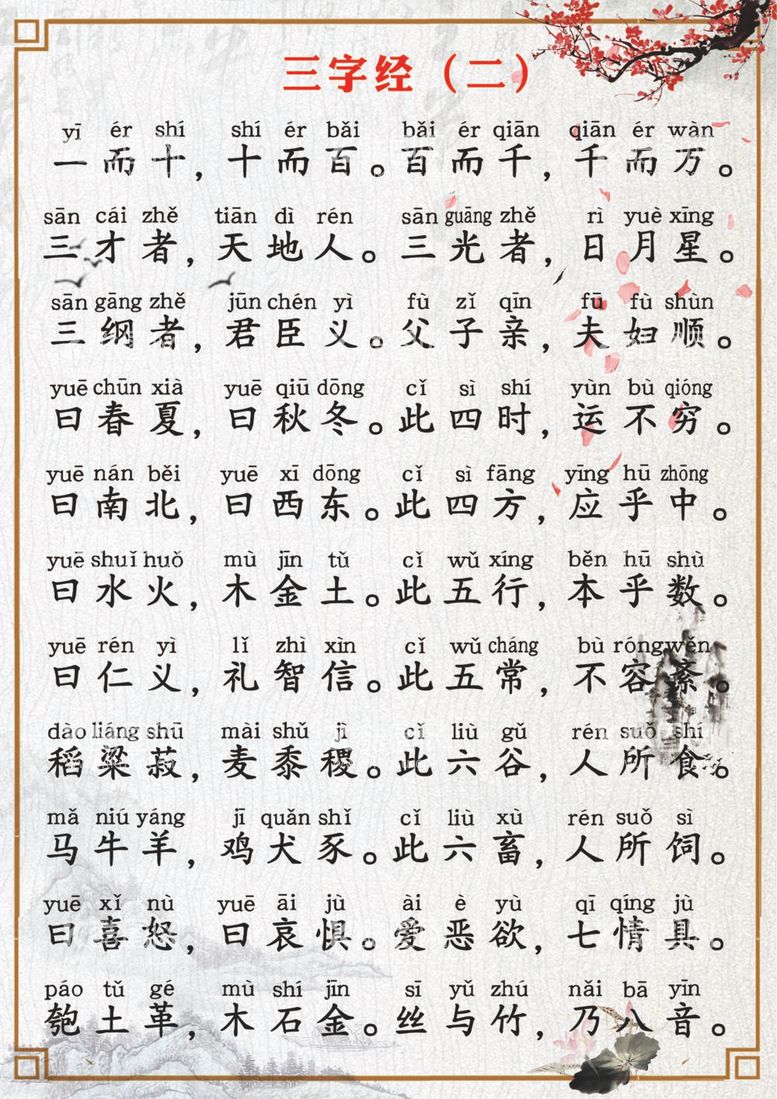 三字经（二）
yī ér shí shí ér bǎi bǎi ér qiān qiān ér wàn
一而十，十而百。百而千，千而万。
sān cái zhě tiān dì rén sān guāng zhě rì yuè xīng
三才者，天地人。三光者，日月星。
sān gāng zhě jūn chén yì fù zǐ qīn fū fù shùn
三纲者，君臣义。父子亲，夫妇顺。
yuē chūn xià yuē qiū dōng cǐ sì shí yùn bù qióng
曰春夏，曰秋冬。此四时，运不穷。
yuē nán běi yuē xī dōng cǐ sì fāng yīng hū zhōng
曰南北，曰西东。此四方，应乎中。
yuē shuǐ huǒ mù jīn tǔ cǐ wǔ xíng běn hū shù
曰水火，木金土。此五行，本乎数。
yuē rén yì lǐ zhì xìn cǐ wǔ cháng bù róng wěn
曰仁义，礼智信。此五常，不容紊。
dào liáng shū mài shǔ jì cǐ liù gǔ rén suǒ shí
稻粱菽，麦黍稷。此六谷，人所食。
mǎ niú yáng jī quǎn shǐ cǐ liù xù rén suǒ sì
马牛羊，鸡犬豕。此六畜，人所饲。
yuē xǐ nù yuē āi jù ài è yù qī qíng jù
曰喜怒，曰哀惧。爱恶欲，七情具。
páo tǔ gé mù shí jīn sī yǔ zhú nǎi bā yīn
匏土革，木石金。丝与竹，乃八音。